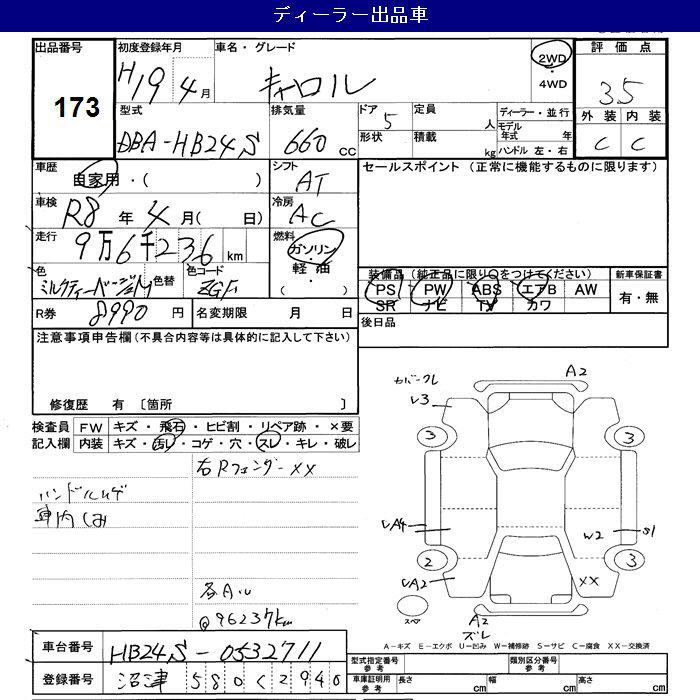 ディーラー出品車
出品番号 173
初度登録年月 H19 4月
車名・グレード キャロル
2WD ・ 4WD
評価点 3.5
外装 内装
C C
型式 DBA-HB24S
排気量 660 cc
ドア 5
形状
定員 人
積載 kg
ディーラー・並行
モデル年式 年
ハンドル 左・右
車歴 自家用・( )
シフト AT
セールスポイント (正常に機能するものに限ります)
車検 R8年 4月( 日)
冷房 AC
走行 9万6千236 km
燃料 ガソリン・軽油・( )
色 ミルクティーベージュM
色替
色コード ZGF
装備品(純正品に限り○をつけてください)
PS PW ABS エアB AW
SR ナビ TV カワ
新車保証書
有・無
R券 8990 円
名変期限 月 日
後日品
注意事項申告欄(不具合内容等は具体的に記入して下さい)
修復歴 有 〔箇所 〕
検査員記入欄
FW キズ・飛石・ヒビ割・リペア跡・×要
内装 キズ・汚レ・コゲ・穴・スレ・キレ・破レ
右Rフェンダー××
ハンドルハゲ
車内しみ
各Aル
@96237km
カバークレ
A2
V3
3
3
VA4
W2
S1
2
3
VA2
××
スペ
A2
ズレ
A-キズ E-エクボ U-凹み W-補修跡 S-サビ C-腐食 XX-交換済
車台番号 HB24S-0532711
登録番号 沼津 580く2940
型式指定番号 参考
類別区分番号 参考
車庫証明用 参考
長さ cm
幅 cm
高さ cm